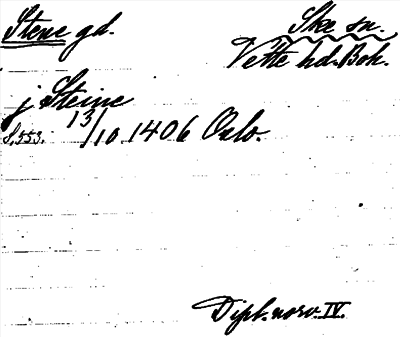 Stene gd.
Ske sn.
Vette hd. Boh.
j Steine
S. 553. 13/10 1406 Oslo.
Dipl. norv. IV.